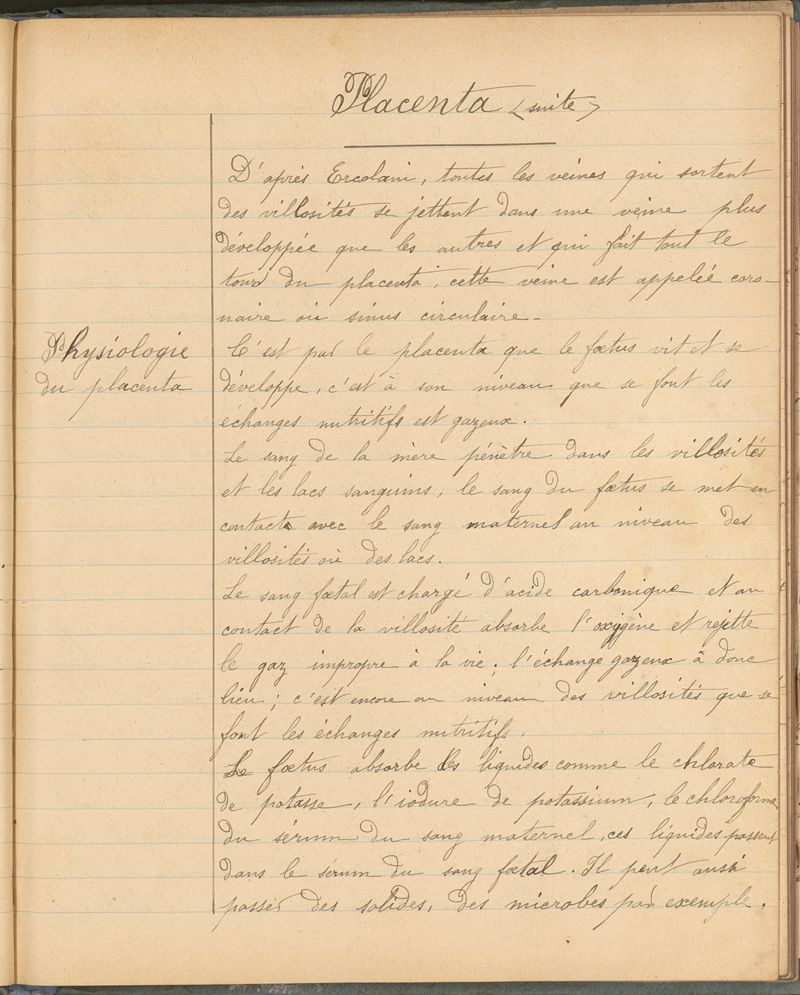 Placenta (suite)
D'après Ercolani, toutes les veines qui sortent
des villosités se jettent dans une veine plus
développée que les autres et qui fait tout le
tour du placenta, cette veine est appelée coro-
naire ou sinus circulaire -
Physiologie
du placenta
C'est par le placenta que le fœtus vit et se
développe, c'est à son niveau que se font les
echanges nutritifs est gazeux.
Le sang de la mère pénètre dans les villosités
et les lacs sanguins, le sang du fœtus se met en
contact avec le sang maternel au niveau des
villosités ou des lacs.
Le sang fœtal est chargé d'acide carbonique et au
contact de la villosité absorbe l'oxygène et rejette
le gaz impropre à la vie; l'échange gazeux à donc
lieu; c'est encore au niveau des villosités que se
font les échanges nutritifs.
Le fœtus absorbe les liquides comme le chlorate
de potasse, l'iodure de potassium, le chloroforme
du sérum du sang maternel, ces liquides passent
dans le sérum du sang fœtal. Il peut aussi
passer des solides, des microbes par exemple.